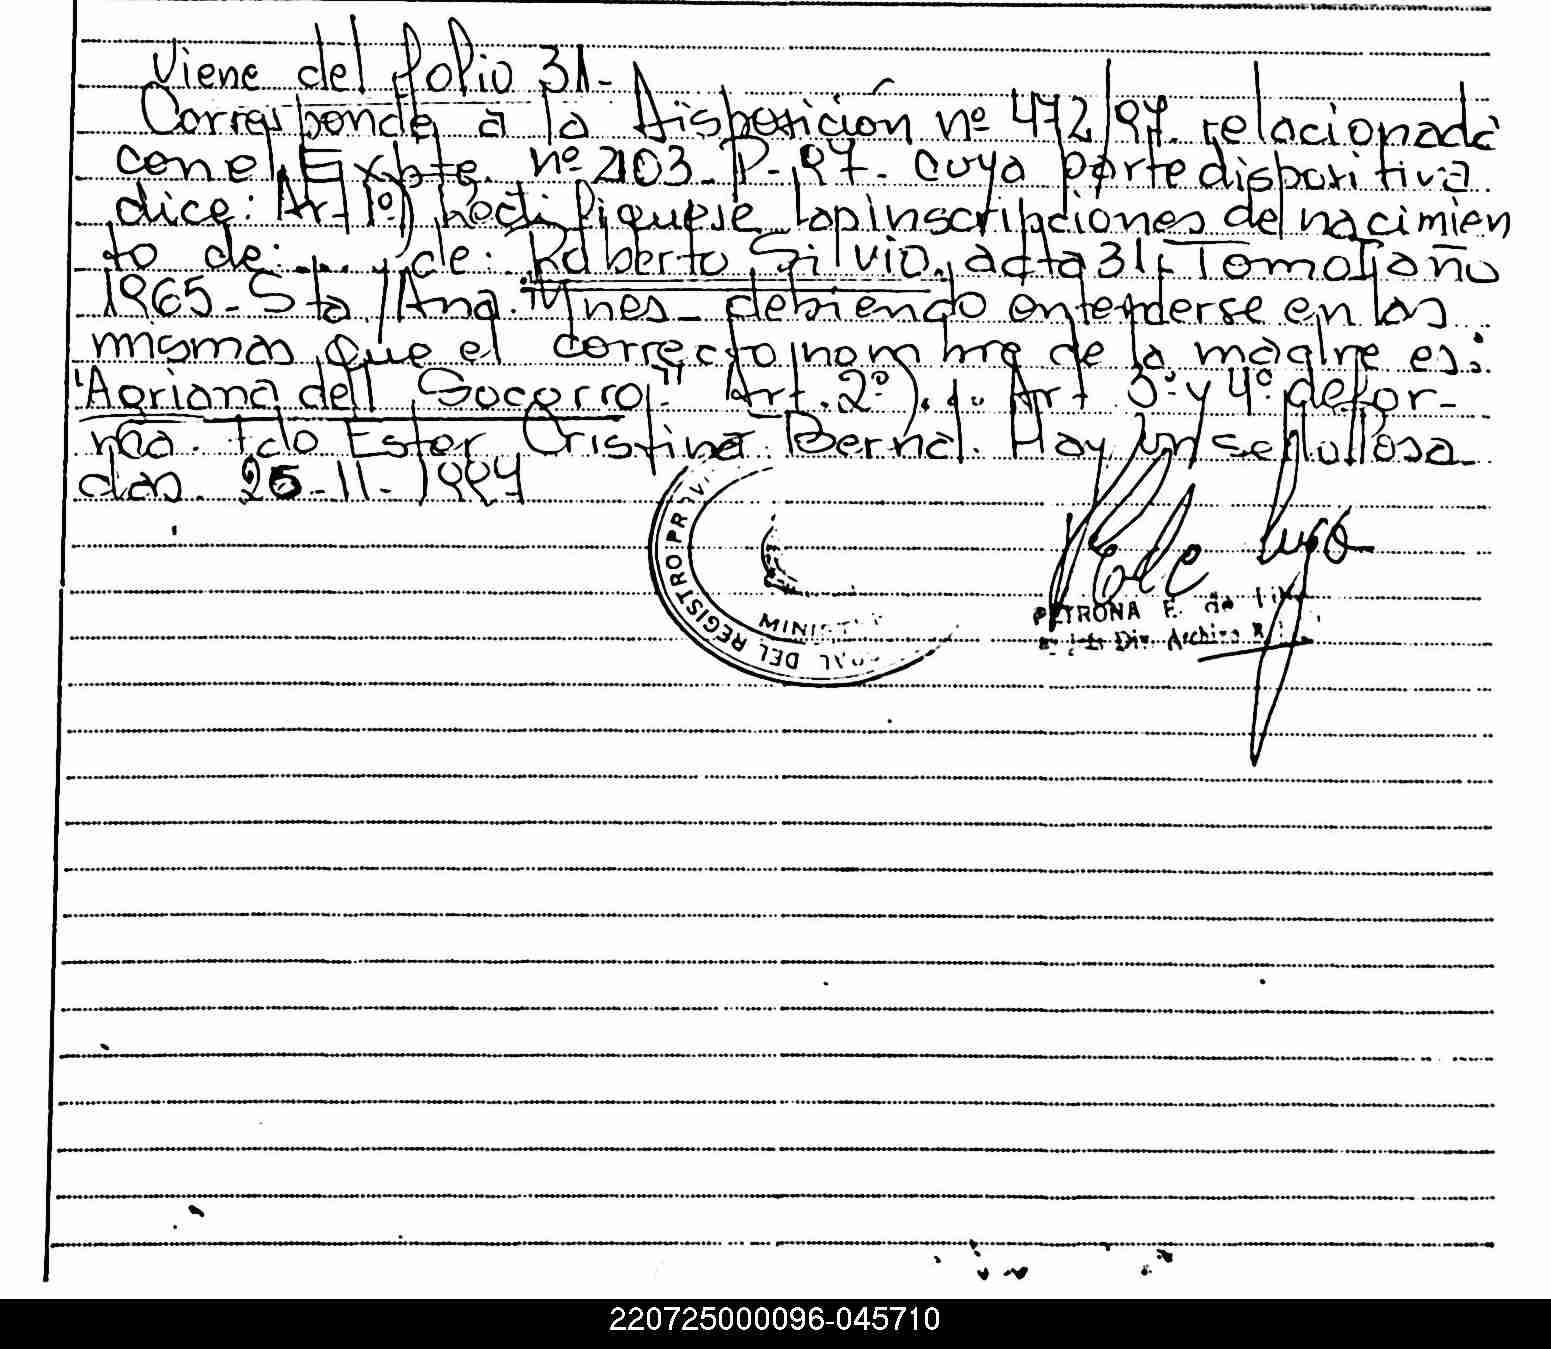 Viene del folio 31-
Corresponde a la Disposición nº 472/97. relacionada
con el Expte. nº 2103-P-97- cuya parte dispositiva
dice: Art 1º) Rectifiquese las inscripciones de nacimien
to de:.... y de: Roberto Silvio, acta 31, Tomo I año
1965- Sta. Ana. Mnes- debiendo entenderse en las
mismas que el correcto nombre de la madre es:
"Adriana del Socorro" Art. 2º)... Art 3º y 4º de for-
ma. Fdo Ester Cristina Bernal. Hay un sello Posa
das. 25-11-1997
REGISTRO PROVI AL DEL
MINIST
PETRONA E. de
Div. Archivo
220725000096-045710